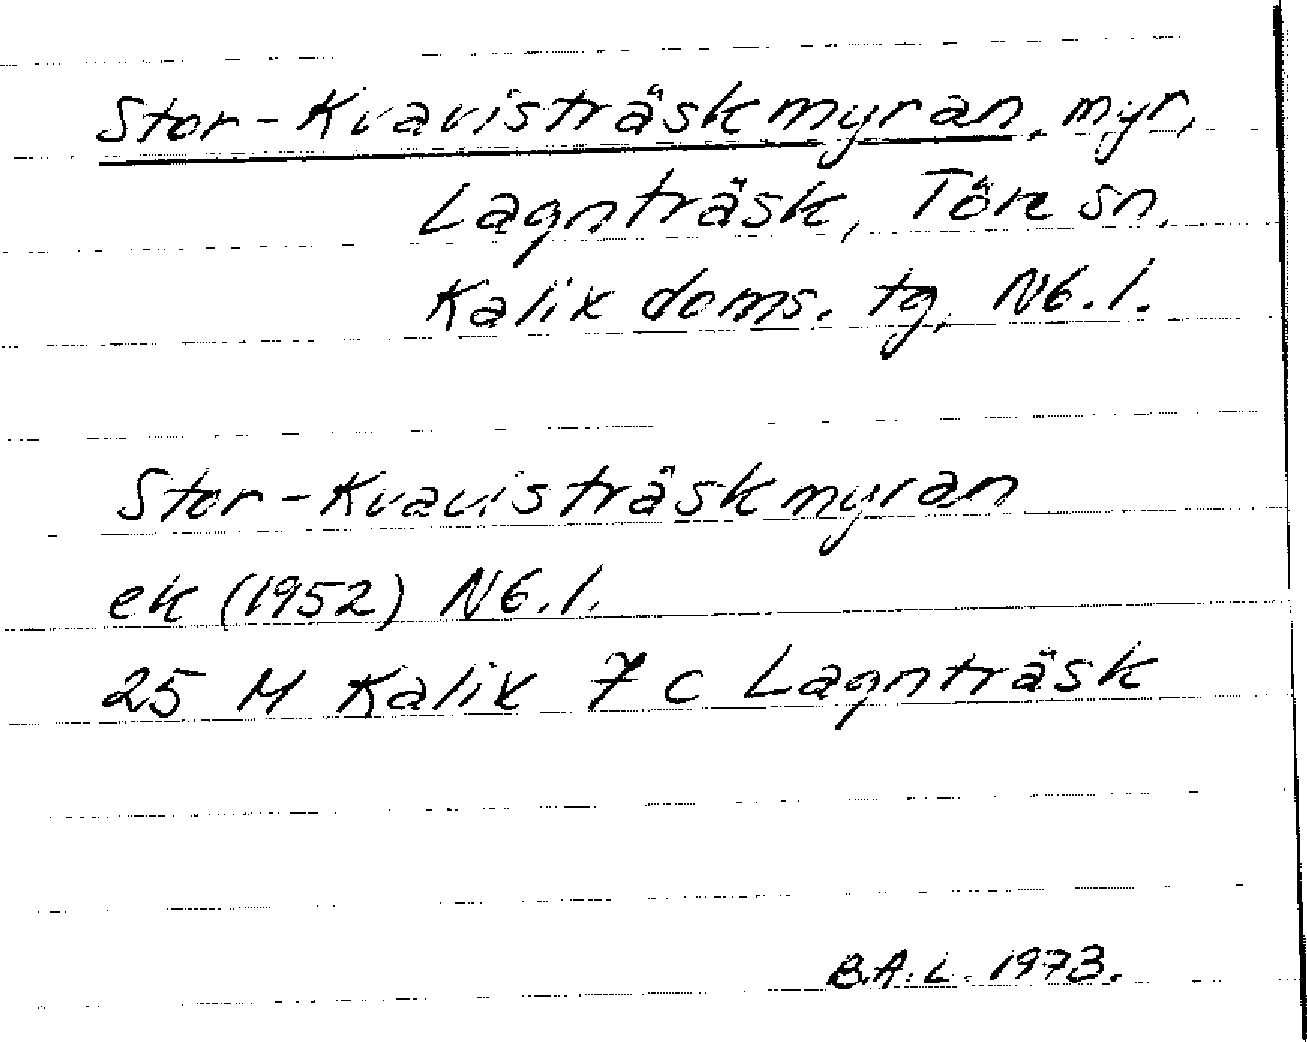 Stor-Kvavisträskmyran, myr,
Lagnträsk, Töre sn.
Kalix doms. tg, Nb.l.
Stor-Kvavisträskmyran
ek (1952) Nb.l.
25 M Kalix 7 c Lagnträsk
B.A.L. 1973.